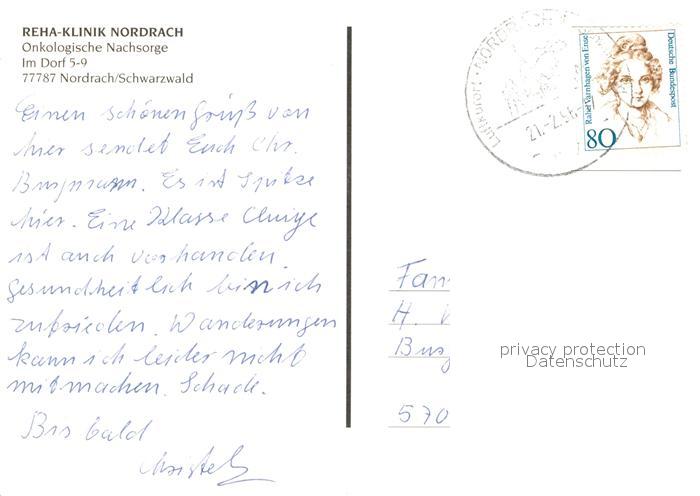 REHA-KLINIK NORDRACH
Onkologische Nachsorge
Im Dorf 5-9
77787 Nordrach/Schwarzwald
Einen schönen Gruß von
hier sendet Euch Chr.
Es ist Spitze
hier. Eine Klasse Clique
ist auch vorhanden.
gesundheitlich bin ich
zufrieden. Wanderungen
kann ich leider nicht
mitmachen. Schade.
Bis bald
Christel
NORDRACH
Luftkurort
21.-2.
Deutsche Bundespost
Rahel Varnhagen von Ense
80
Fam
H.
Bus
570
privacy protection
Datenschutz